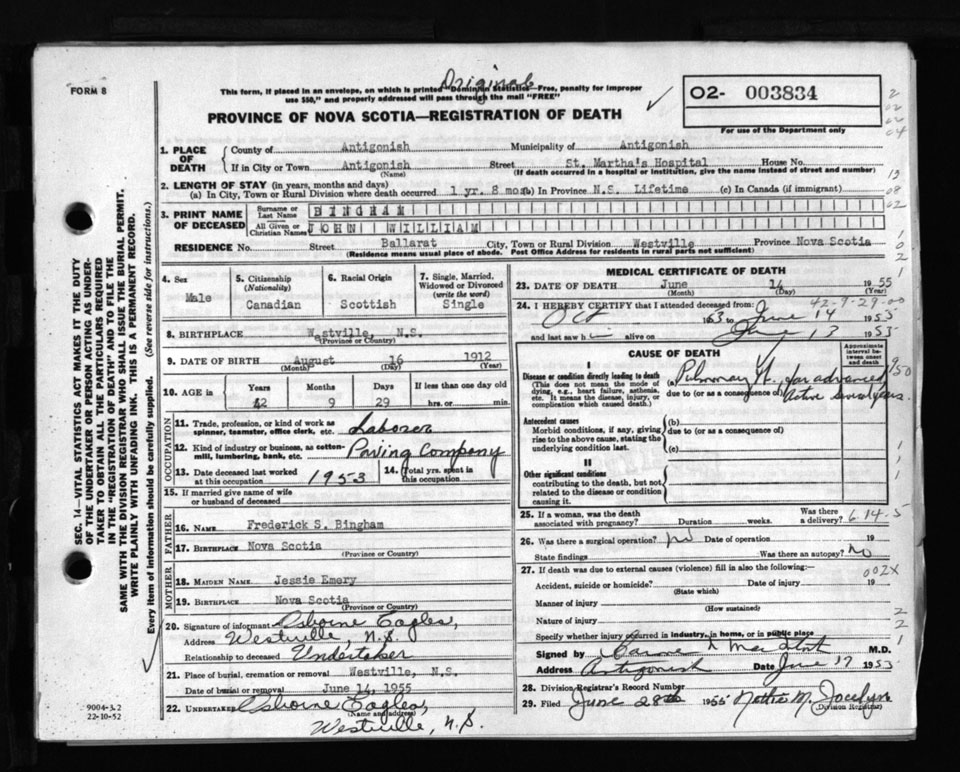 Original
FORM 8
This form, if placed in an envelope, on which is printed "Dominion Statistics—Free, penalty for improper
use $50," and properly addressed will pass through the mail "FREE"
PROVINCE OF NOVA SCOTIA—REGISTRATION OF DEATH
O2- 003834
For use of the Department only
1. PLACE OF DEATH
County of Antigonish Municipality of Antigonish
If in City or Town Antigonish Street St. Martha's Hospital House No.
(Name) (If death occurred in a hospital or institution, give the name instead of street and number)
2. LENGTH OF STAY (in years, months and days)
(a) In City, Town or Rural Division where death occurred 1 yr. 8 mos. (b) In Province N.S. Lifetime (c) In Canada (if immigrant)
3. PRINT NAME OF DECEASED
Surname or Last Name BINGHAM
All Given or Christian Names JOHN WILLIAM
RESIDENCE No. Street Ballarat City, Town or Rural Division Westville Province Nova Scotia
(Residence means usual place of abode. Post Office Address for residents in rural parts not sufficient)
4. Sex
Male
5. Citizenship
(Nationality)
Canadian
6. Racial Origin
Scottish
7. Single, Married,
Widowed or Divorced
(write the word)
Single
8. BIRTHPLACE Westville, N.S.
(Province or Country)
9. DATE OF BIRTH August 16 1912
(Month) (Day) (Year)
10. AGE in
Years Months Days If less than one day old
42 9 29 hrs. or min.
OCCUPATION
11. Trade, profession, or kind of work as
spinner, teamster, office clerk, etc. Laborer
12. Kind of industry or business, as cotton-
mill, lumbering, bank, etc. Paving Company
13. Date deceased last worked
at this occupation 1953
14. Total yrs. spent in
this occupation
15. If married give name of wife
or husband of deceased
FATHER
16. NAME Frederick S. Bingham
17. BIRTHPLACE Nova Scotia
(Province or Country)
MOTHER
18. MAIDEN NAME Jessie Emery
19. BIRTHPLACE Nova Scotia
(Province or Country)
20. Signature of informant Osborne Eagles,
Address Westville, N.S.
Relationship to deceased Undertaker
21. Place of burial, cremation or removal Westville, N.S.
Date of burial or removal June 14, 1955
22. UNDERTAKER Osborne Eagles,
(Name and address)
Westville, N.S.
MEDICAL CERTIFICATE OF DEATH
23. DATE OF DEATH June 14 1955
(Month) (Day) (Year)
42-9-29-00
24. I HEREBY CERTIFY that I attended deceased from:
Oct 1953 to June 14 1955
and last saw him alive on June 13 1955
CAUSE OF DEATH
Approximate interval between onset and death
I
Disease or condition directly leading to death
(This does not mean the mode of
dying, e.g., heart failure, asthenia,
etc. It means the disease, injury, or
complication which caused death.)
(a) Pulmonary far advanced,
due to (or as a consequence of) Active several years.
Antecedent causes
Morbid conditions, if any, giving
rise to the above cause, stating the
underlying condition last.
(b)
due to (or as a consequence of)
(c)
II
Other significant conditions
contributing to the death, but not
related to the disease or condition
causing it.
25. If a woman, was the death
associated with pregnancy? Duration weeks. Was there a delivery?
6-14-5
26. Was there a surgical operation? Date of operation 19
State findings Was there an autopsy? No
27. If death due to external causes (violence) fill in also the following:—
002X
Accident, suicide or homicide? Date of injury 19
(State which)
Manner of injury
(How sustained)
Nature of injury
Specify whether injury occurred in industry, in home, or in public place
Signed by M.D.
Address Antigonish Date June 17 1955
28. Division Registrar's Record Number
29. Filed June 28th 1955
(Division Registrar)
SEC. 14—VITAL STATISTICS ACT MAKES IT THE DUTY
OF THE UNDERTAKER OR PERSON ACTING AS UNDER-
TAKER TO OBTAIN ALL THE PARTICULARS REQUIRED
IN THE "REGISTRATION OF DEATH" AND TO FILE THE
SAME WITH THE DIVISION REGISTRAR WHO SHALL ISSUE THE BURIAL PERMIT.
WRITE PLAINLY WITH UNFADING INK. THIS IS A PERMANENT RECORD.
Every item of information should be carefully supplied. (See reverse side for instructions.)
9004-3.2
22-10-52